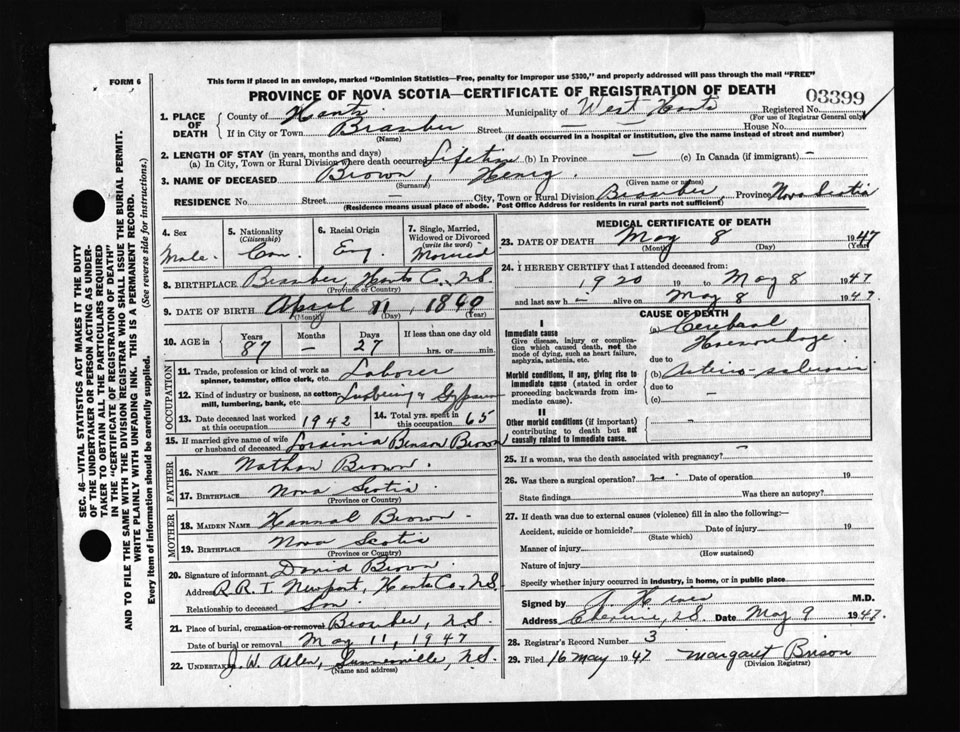 FORM 6
This form if placed in an envelope, marked "Dominion Statistics—Free, penalty for improper use $300," and properly addressed will pass through the mail "FREE"
PROVINCE OF NOVA SCOTIA—CERTIFICATE OF REGISTRATION OF DEATH
03399
1. PLACE OF DEATH
County of Hants Municipality of West Hants Registered No.
(For use of Registrar General only)
If in City or Town Bramber Street — House No. —
(Name) (If death occurred in a hospital or institution, give the name instead of street and number)
2. LENGTH OF STAY (in years, months and days)
(a) In City, Town or Rural Division where death occurred Lifetime (b) In Province — (c) In Canada (if immigrant) —
3. NAME OF DECEASED Brown, Henry.
(Surname) (Given name or names)
RESIDENCE No. Street — City, Town or Rural Division Bramber, Province Nova Scotia
(Residence means usual place of abode. Post Office Address for residents in rural parts not sufficient)
4. Sex
Male.
5. Nationality (Citizenship)
Can.
6. Racial Origin
Eng.
7. Single, Married, Widowed or Divorced (write the word)
Married
8. BIRTHPLACE Bramber, Hants Co. N.S.
(Province or Country)
9. DATE OF BIRTH April 11, 1860
(Month) (Day) (Year)
10. AGE in Years Months Days If less than one day old
87 — 27 hrs. or min.
OCCUPATION
11. Trade, profession or kind of work as spinner, teamster, office clerk, etc. Laborer
12. Kind of industry or business, as cotton mill, lumbering, bank, etc. Gypsum
13. Date deceased last worked at this occupation 1942
14. Total yrs. spent in this occupation 65
15. If married give name of wife or husband of deceased Benson Brown
FATHER
16. NAME Nathan Brown.
17. BIRTHPLACE Nova Scotia
(Province or Country)
MOTHER
18. MAIDEN NAME Hannah Brown.
19. BIRTHPLACE Nova Scotia
(Province or Country)
20. Signature of informant David Brown
Address R.R. 1. Newport, Hants Co. N.S.
Relationship to deceased Son
21. Place of burial, cremation or removal Bramber, N.S.
Date of burial or removal May 11, 1947
22. UNDERTAKER J. W. Allen, N.S.
(Name and address)
MEDICAL CERTIFICATE OF DEATH
23. DATE OF DEATH May 8 1947
(Month) (Day) (Year)
24. I HEREBY CERTIFY that I attended deceased from:
1920 19 to May 8 1947
and last saw h i alive on May 8 1947
CAUSE OF DEATH
I
Immediate cause
Give disease, injury or complication which caused death, not the mode of dying, such as heart failure, asphyxia, asthenia, etc.
(a) Cerebral Haemorrhage.
due to
Morbid conditions, if any, giving rise to immediate cause (stated in order proceeding backwards from immediate cause).
(b) Arterio-sclerosis
due to
(c) —
II
Other morbid conditions (if important) contributing to death but not causally related to immediate cause.
25. If a woman, was the death associated with pregnancy? —
26. Was there a surgical operation? no Date of operation 19
State findings Was there an autopsy?
27. If death was due to external causes (violence) fill in also the following:—
Accident, suicide or homicide? Date of injury 19
(State which)
Manner of injury
(How sustained)
Nature of injury
Specify whether injury occurred in industry, in home, or in public place
Signed by M.D.
Address N.S. Date May 9 1947.
28. Registrar's Record Number 3
29. Filed 16 May 1947 Margaret Brison
(Division Registrar)
SEC. 46- VITAL STATISTICS ACT MAKES IT THE DUTY
OF THE UNDERTAKER OR PERSON ACTING AS UNDER-
TAKER TO OBTAIN ALL THE PARTICULARS REQUIRED
IN THE "CERTIFICATE OF REGISTRATION OF DEATH"
AND TO FILE THE SAME WITH THE DIVISION REGISTRAR WHO SHALL ISSUE THE BURIAL PERMIT.
WRITE PLAINLY WITH UNFADING INK. THIS IS A PERMANENT RECORD.
Every item of Information should be carefully supplied. (See reverse side for instructions.)